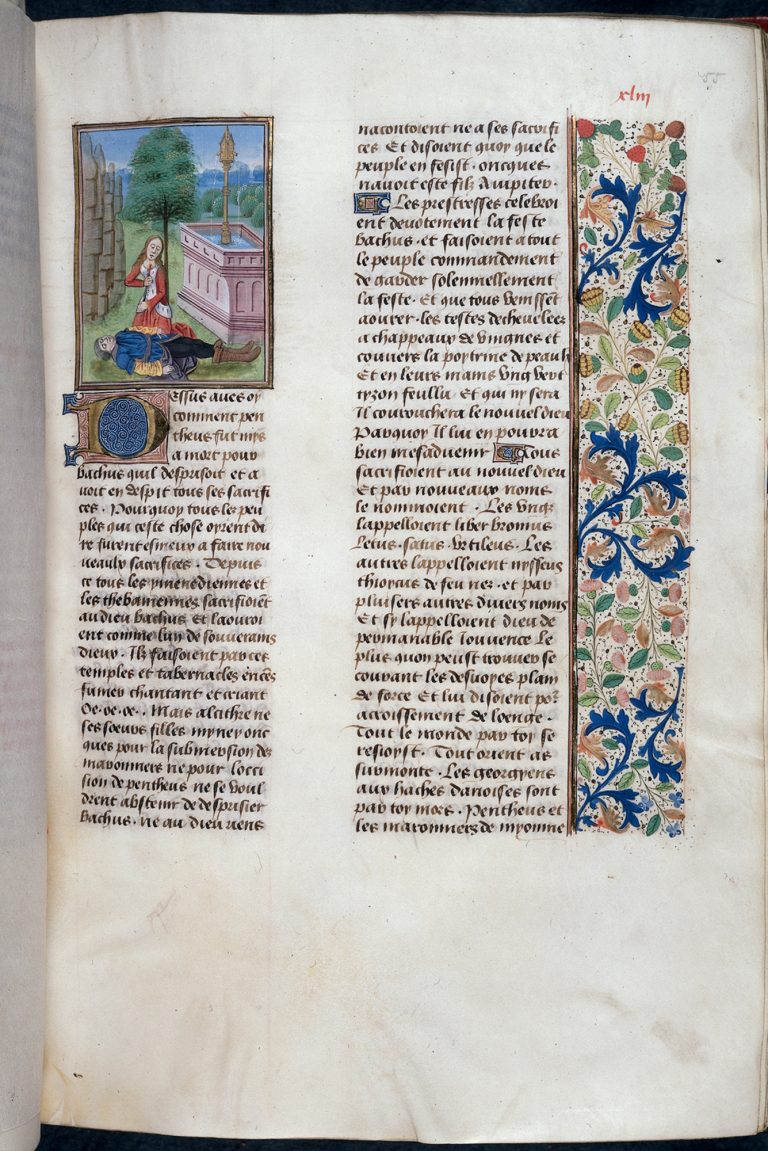 xliii
55
Dessus aves oy
comment pen
theus fut mys
a mort pour
bachus quil desprisoit et a
voit en despit tous ses sacrifi
ces . Pourquoy tous les peu
ples qui ceste chose oyrent di
re furent esmeux a faire nou
ueaulx sacrifices . Depuis
ce tous les ymenediennes et
les thebaiennes sacrifioiet
au dieu bachus et laouroi
ent comme lun de souuerains
dieux . Ilz faisoient par ces
temples et tabernacles ences
fumer chantant et criant
Oe . oe . oe . Mais alcithre ne
ses soeurs filles myney onc
ques pour la submersion des
maronniers ne pour locci
sion de pentheus ne se voul
drent abstenir de desprisier
bachus . ne au dieu riens
nacontoient ne a ses sacrifi
ces Et disoient quoy que le
peuple en fesist . oncques
nauoit este filz Jupiter .
Les prestresses celebroi
ent deuotement la feste
bachus . et faisoient a tout
le peuple commandement
de garder solennellement
la feste . Et que tous venisset
aourer . les testes decheuelees
a chappeaux de vingnes et
couuers la poytrine de peaulx
Et en leurs mains vng vert
tyzon feullu Et qui ny sera
Il courouchera le nouuel dieu
Parquoy Il lui en pourra
bien mesaduenir Tous
sacrifioient au nouuel dieu
Et par nouueaux noms
le nommoient . Les vngz
lappelloient liber bromius
Letus . satus . vrtileus . Les
autres lappelloient nysseus
thiorcus de feu nez . et par
pluisers autres diuers noms
Et sy lappelloient dieu de
permanable Iouuence Le
plus quon peust trouuer se
couurant les desuoyes plain
de force Et lui disoient por
accroissement de loenge .
Tout le monde par toy se
resioyst . Tout orient as
surmonte . Les georgyens
aux haches danoises sont
par toy mors . Pentheus et
les maronniers de myonne